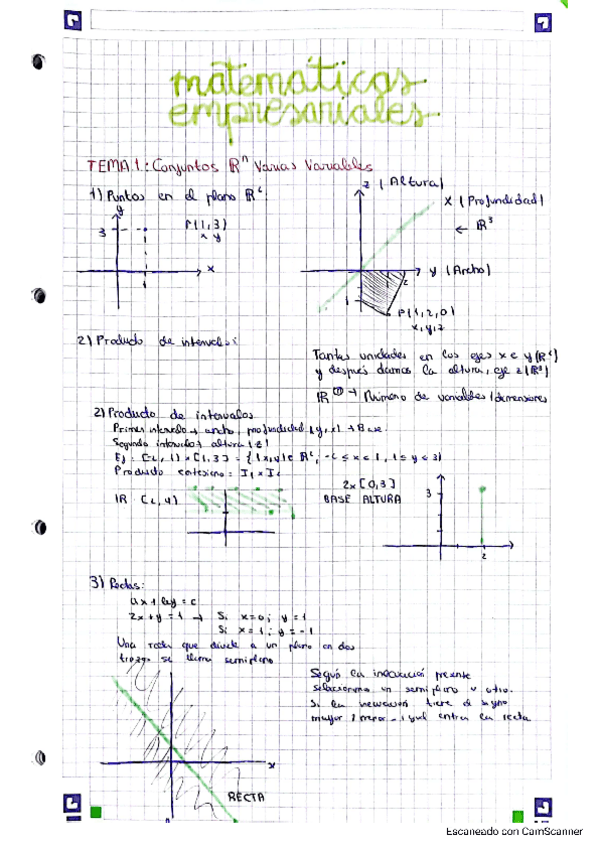 matemáticas
empresariales
TEMA 1.: Conjuntos Rⁿ Varias Variables
1) Puntos en el plano R²
y
3
P(1,3)
x y
x
1
z (Altura)
x (Profundidad)
← R³
y (Ancho)
2
1
P(1,2,0)
x,y,z
2) Producto de intervalos:
Tantas unidades en los ejes x e y (R²)
y después damos la altura, eje z (R³)
IR ⁿ → Número de variables / dimensiones
2) Producto de intervalos
Primer intervalo → ancho, profundidad (y,x) → Base.
Segundo intervalo → altura (z)
Ej: [-2,1) × [1,3] = {(x,y) ∈ R², -2 ≤ x < 1, 1 ≤ y ≤ 3}
Producto cartesiano = I₁ × I₂
IR
2x[0,3]
BASE ALTURA
3
2
3) Rectas:
ax + by = c
2x + y = 1 → Si x=0; y = 1
Si x = 1; y = -1
Una recta que divide a un plano en dos
trozos se llama semiplano
Según la inecuación
seleccionamos un semiplano u otro.
Si la inecuación tiene el signo
mayor / menor igual entra la recta
x
RECTA
Escaneado con CamScanner